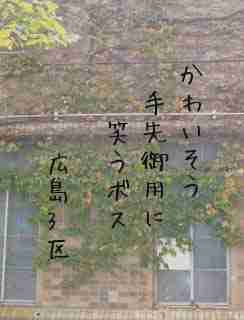 かわいそう
手先御用に
笑うボス
広島3区